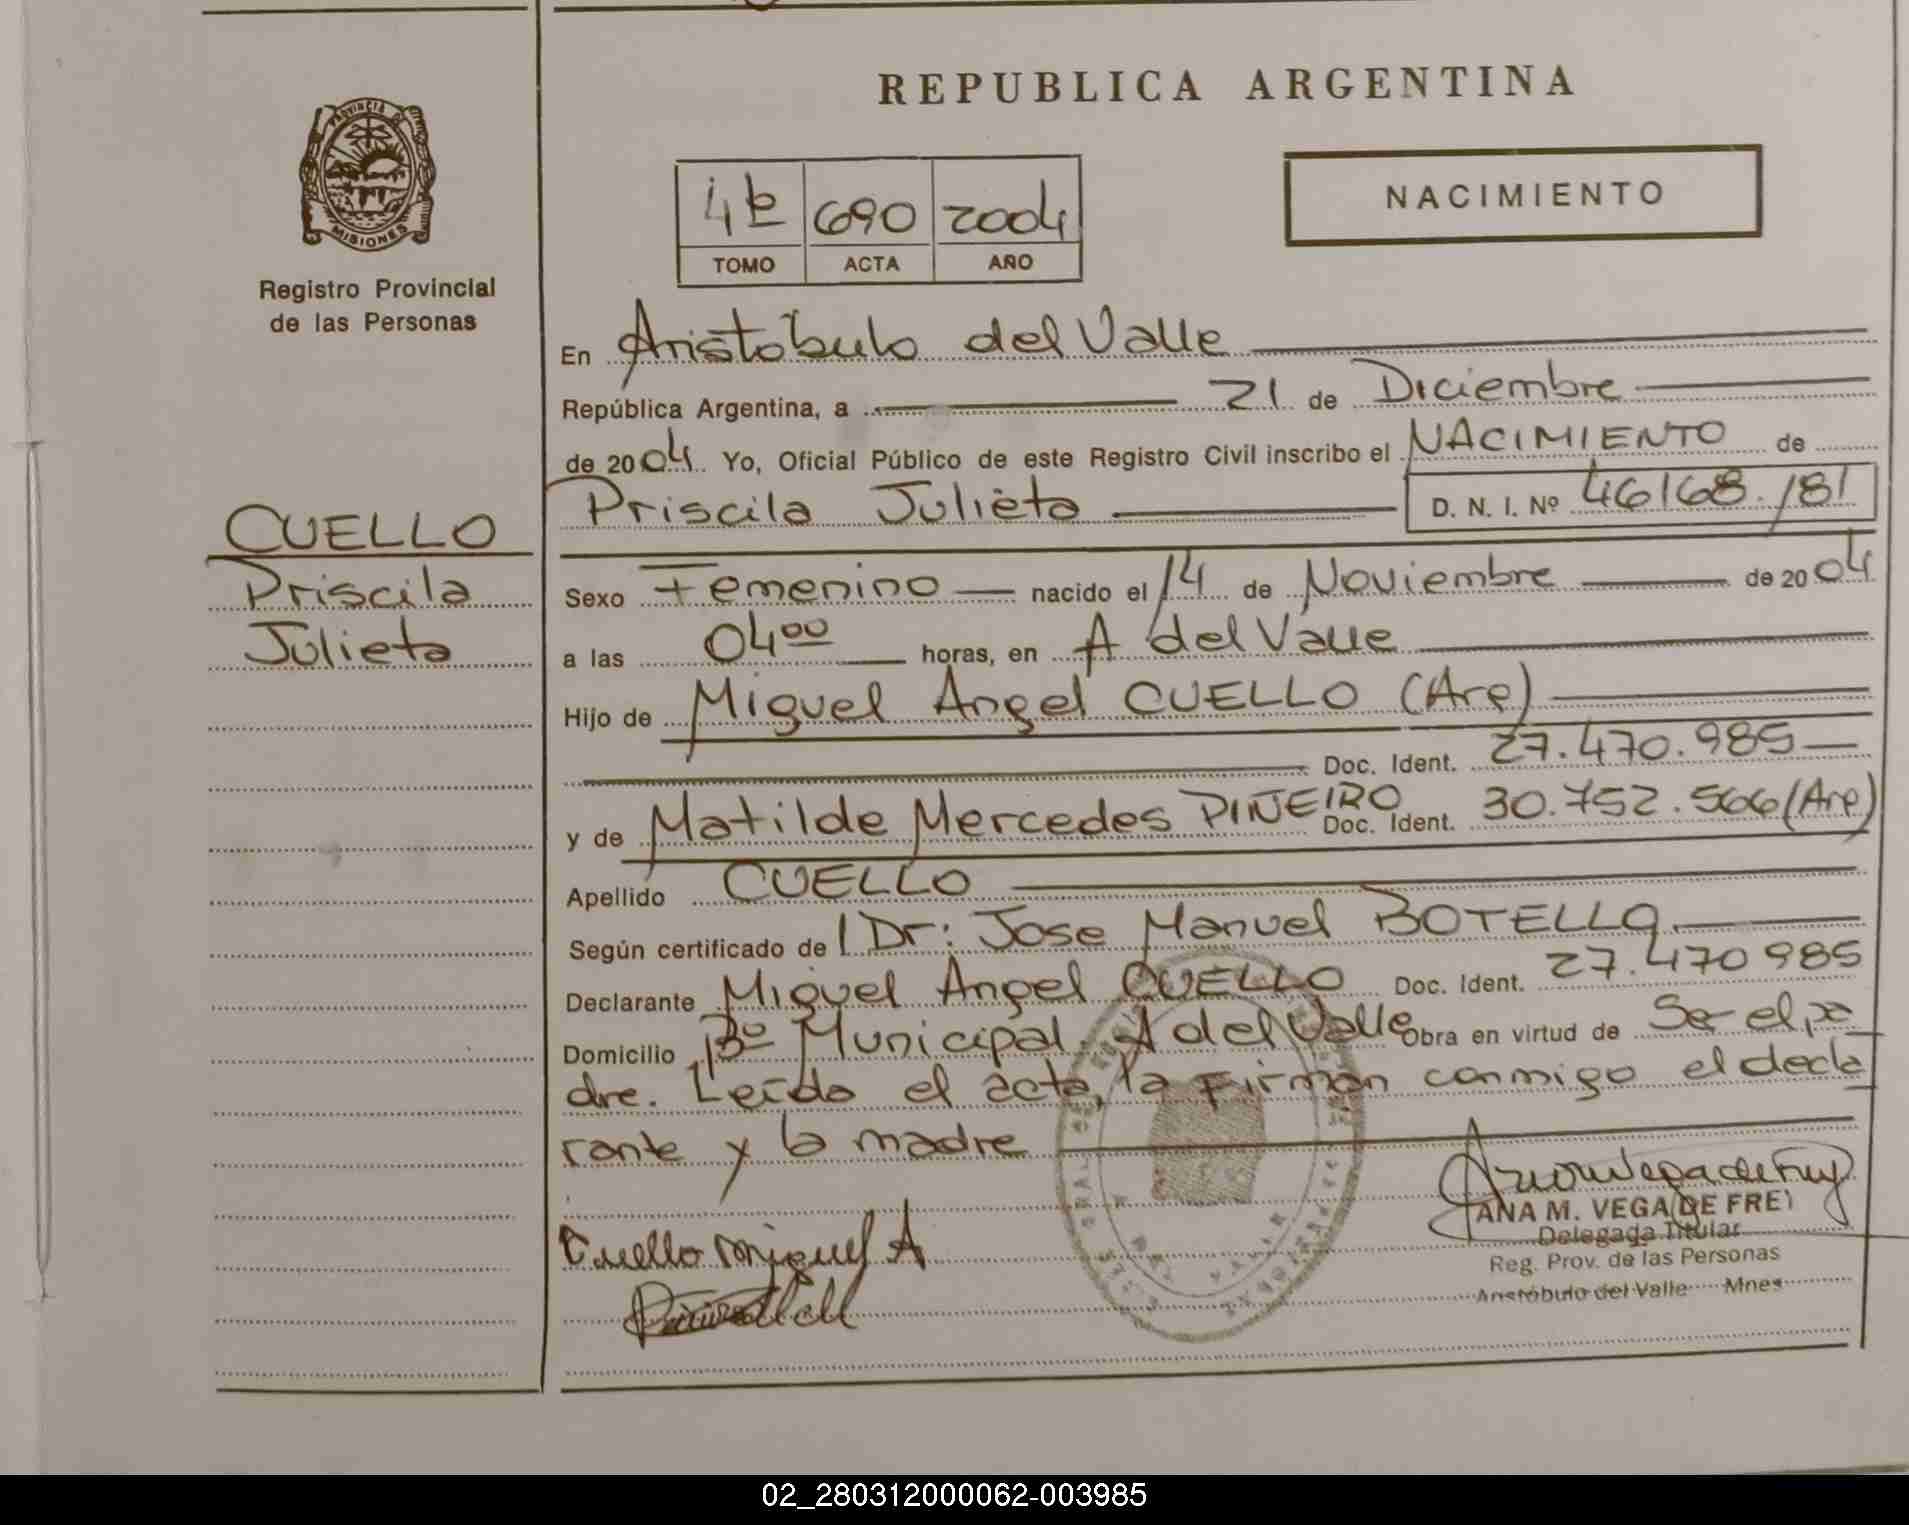 REPUBLICA ARGENTINA
PROVINCIA DE
MISIONES
Registro Provincial
de las Personas
NACIMIENTO
690 2004
TOMO ACTA AÑO
En Aristóbulo del Valle
República Argentina, a 21 de Diciembre
de 2004 Yo, Oficial Público de este Registro Civil inscribo el NACIMIENTO de
Priscila Julieta D. N. I. Nº 46168./81
CUELLO
Priscila
Julieta
Sexo Femenino nacido el 14 de Noviembre de 2004
a las 04 00 horas, en A del Valle
Hijo de Miguel Angel CUELLO (Arg)
Doc. Ident. 27.470.985
y de Matilde Mercedes PIÑEIRO Doc. Ident. 30.752.566 (Arg)
Apellido CUELLO
Según certificado de Dr: Jose Manuel BOTELLO
Declarante Miguel Angel CUELLO Doc. Ident. 27.470985
Domicilio Bº Municipal. A del Valle Obra en virtud de Ser el pa
dre. Leída el acta, la Firman conmigo el decla
rante y la madre
Cuello Miguel A
ANA M. VEGA DE FREI
Delegada Titular
Reg. Prov. de las Personas
Aristóbulo del Valle Mnes
02_280312000062-003985